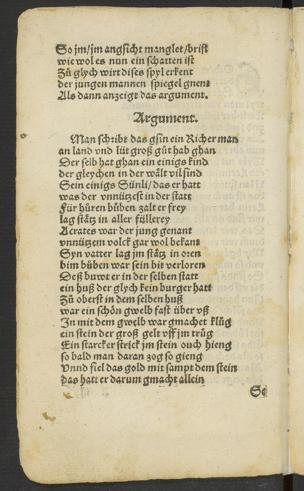 So jm/jm angsicht manglet/brist
wie wol es nun ein schatten ist
Zů glych wirt dises spyl erkent
der jungen mannen spiegel gnent
Als dann anzeigt das argument.
Argument.
Man schribt das gsin ein Richer man
an land vnd lüt groß gůt hab ghan
Der selb hat ghan ein einigs kind
der gleychen in der wält vil sind
Sein einigs Sünli/das er hatt
was der vnnützest in der statt
Für hůren bůben zalt er frey
lag stätz in aller füllerey
Acrates war der jung genant
vnnützem volck gar wol bekant
Syn vatter lag jm stätz in oren
bim bůben war sein bit verloren
Deß buwt er in der selben statt
ein huß der glych kein burger hatt
Zů oberst in dem selben huß
war ein schön gwelb fast über vß
In mit dem gwelb war gmachet klůg
ein stein der groß gelt vff jm trůg
Ein starcker strick jm stein ouch hieng
so bald man daran zog so gieng
Vnnd fiel das gold mit sampt dem stein
das hatt er darum gmacht allein
So